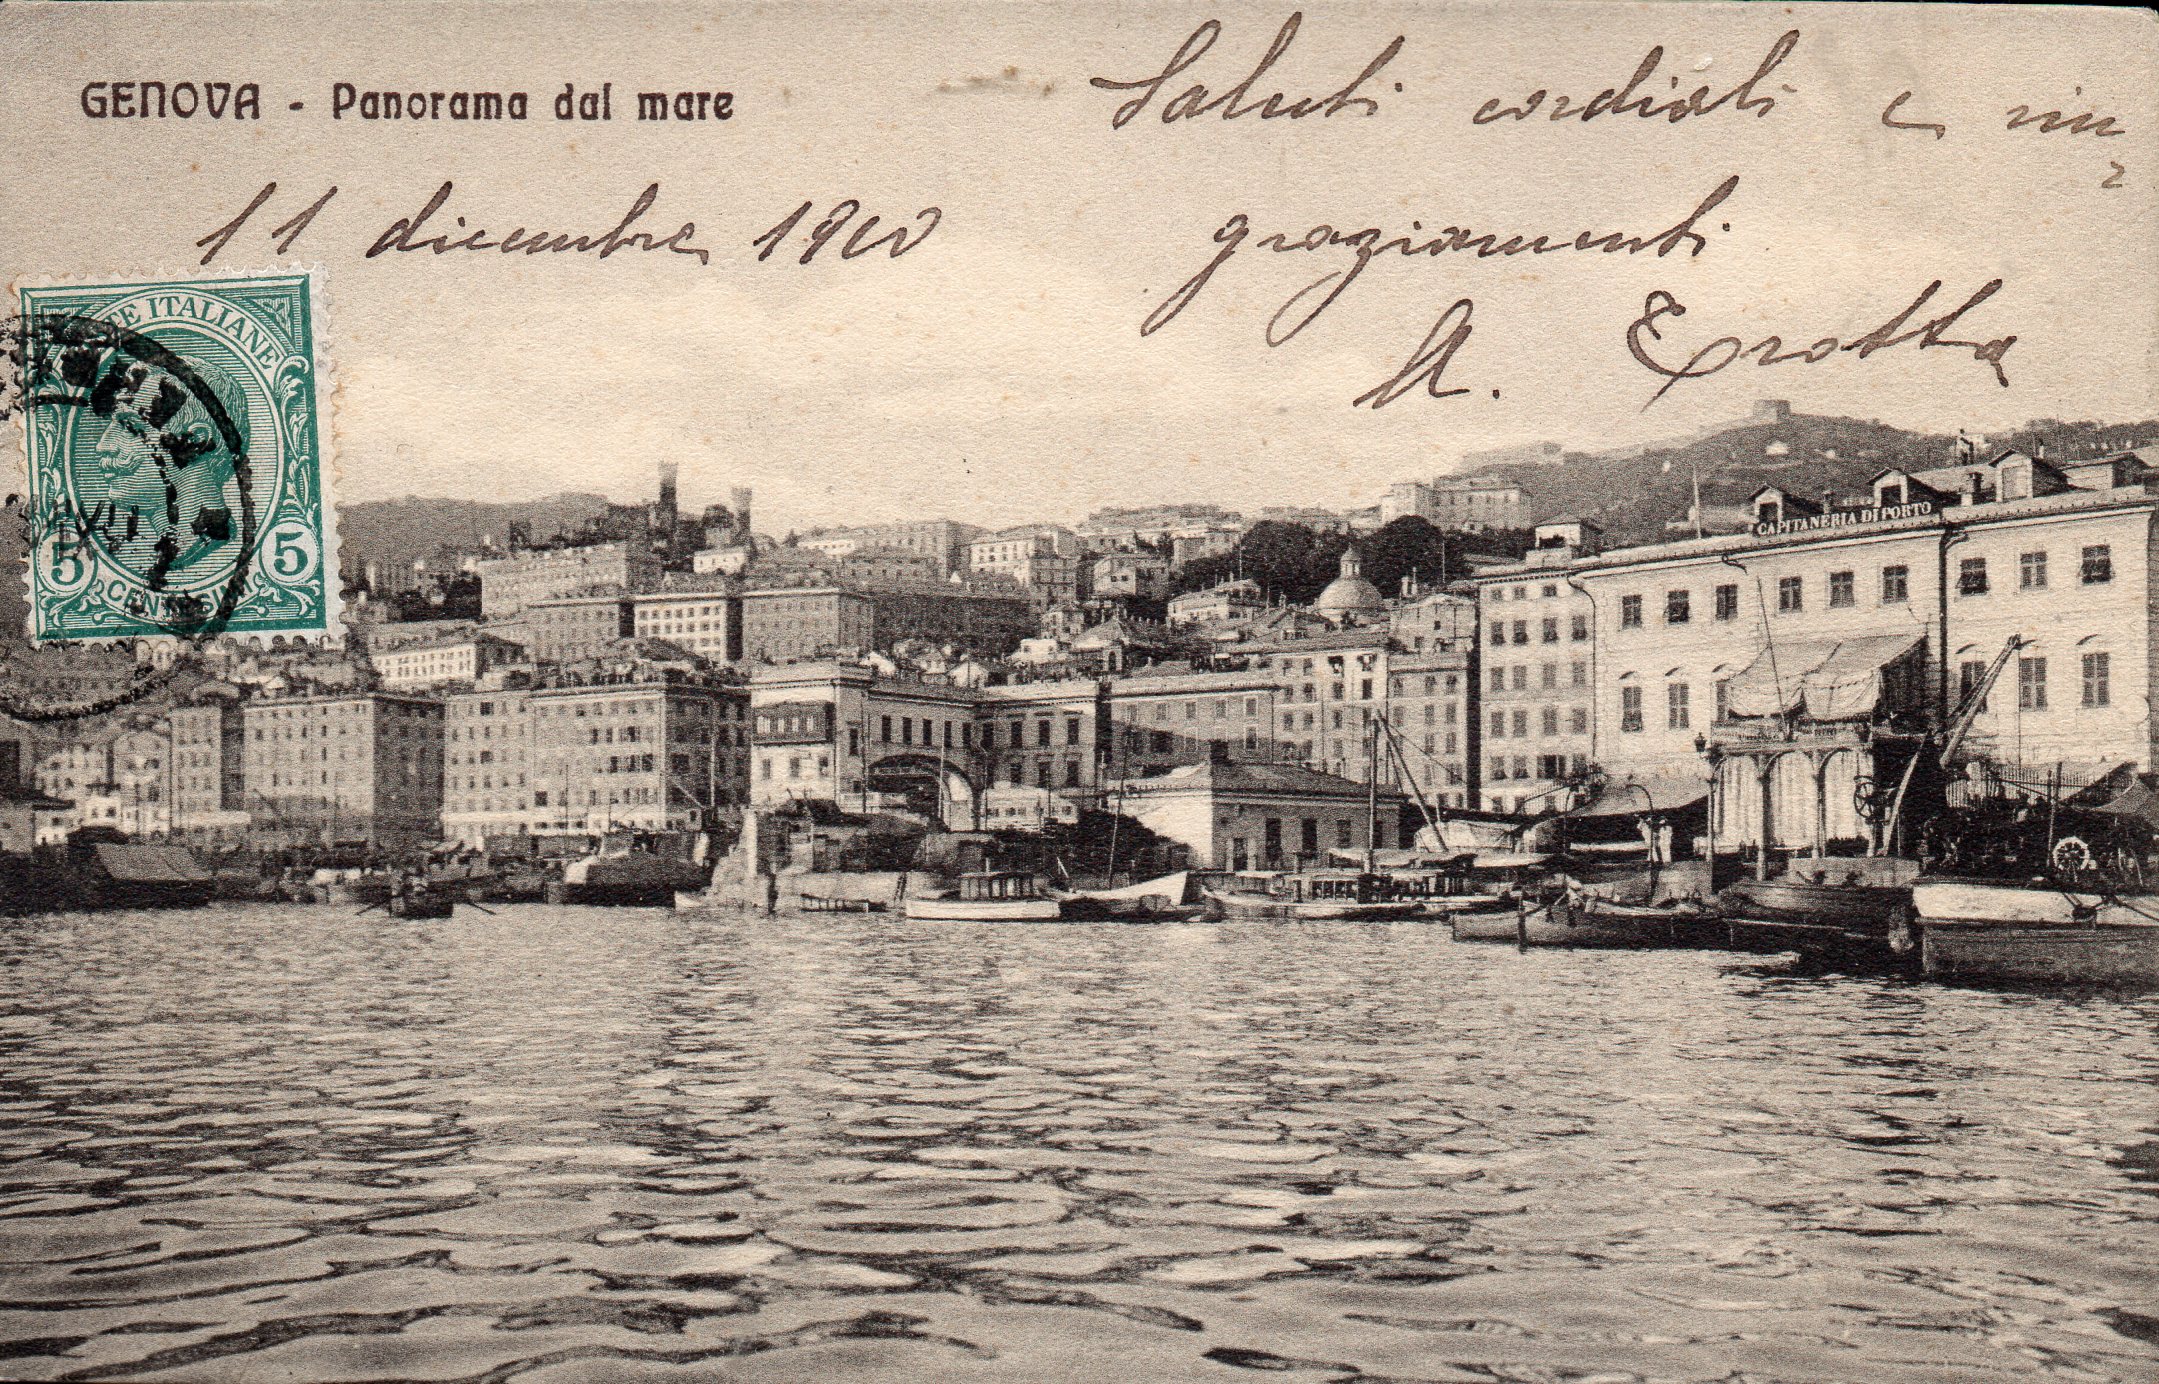 GENOVA - Panorama dal mare
Saluti cordiali e rin
graziamenti
11 dicembre 1910
A.
POSTE ITALIANE
5 5
CENTESIMI
CAPITANERIA DI PORTO